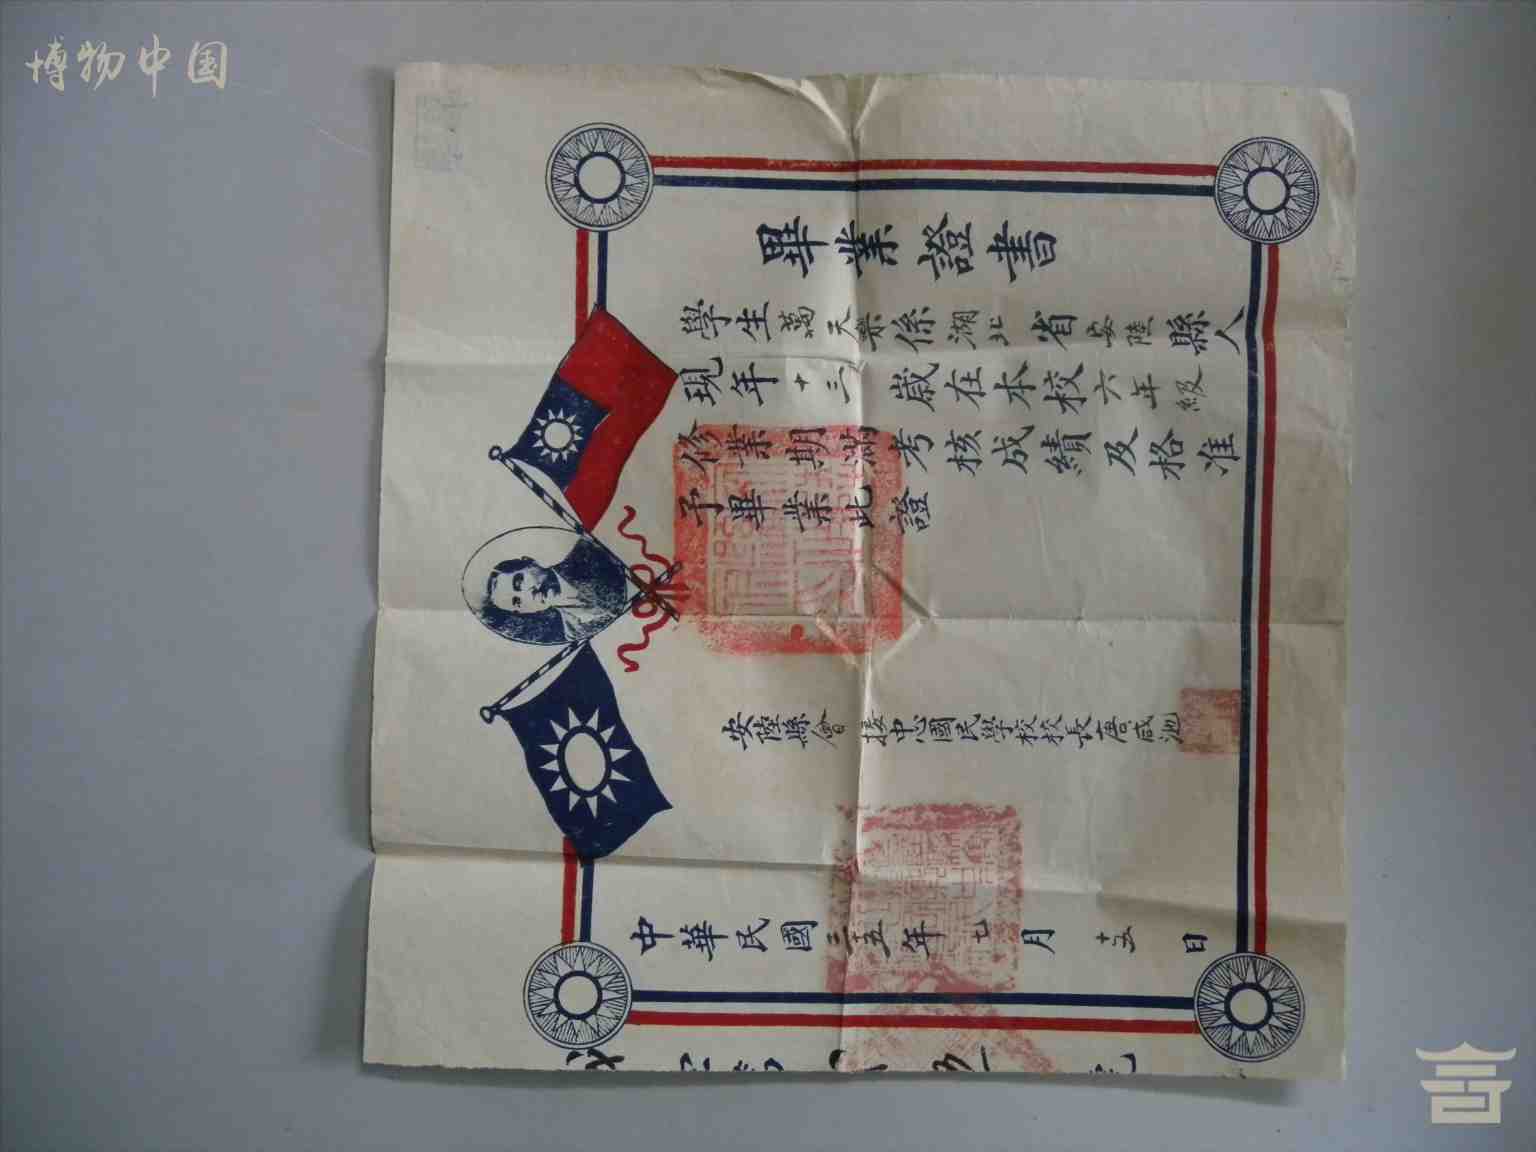 博物中国
畢業證書
學生萬天樂係湖北省安陸縣人
現年十三歲在本校六年級
修業期滿考核成績及格准
予畢業此證
安陸縣會接中心國民學校校長唐咸池
中華民國三五年七月十五日